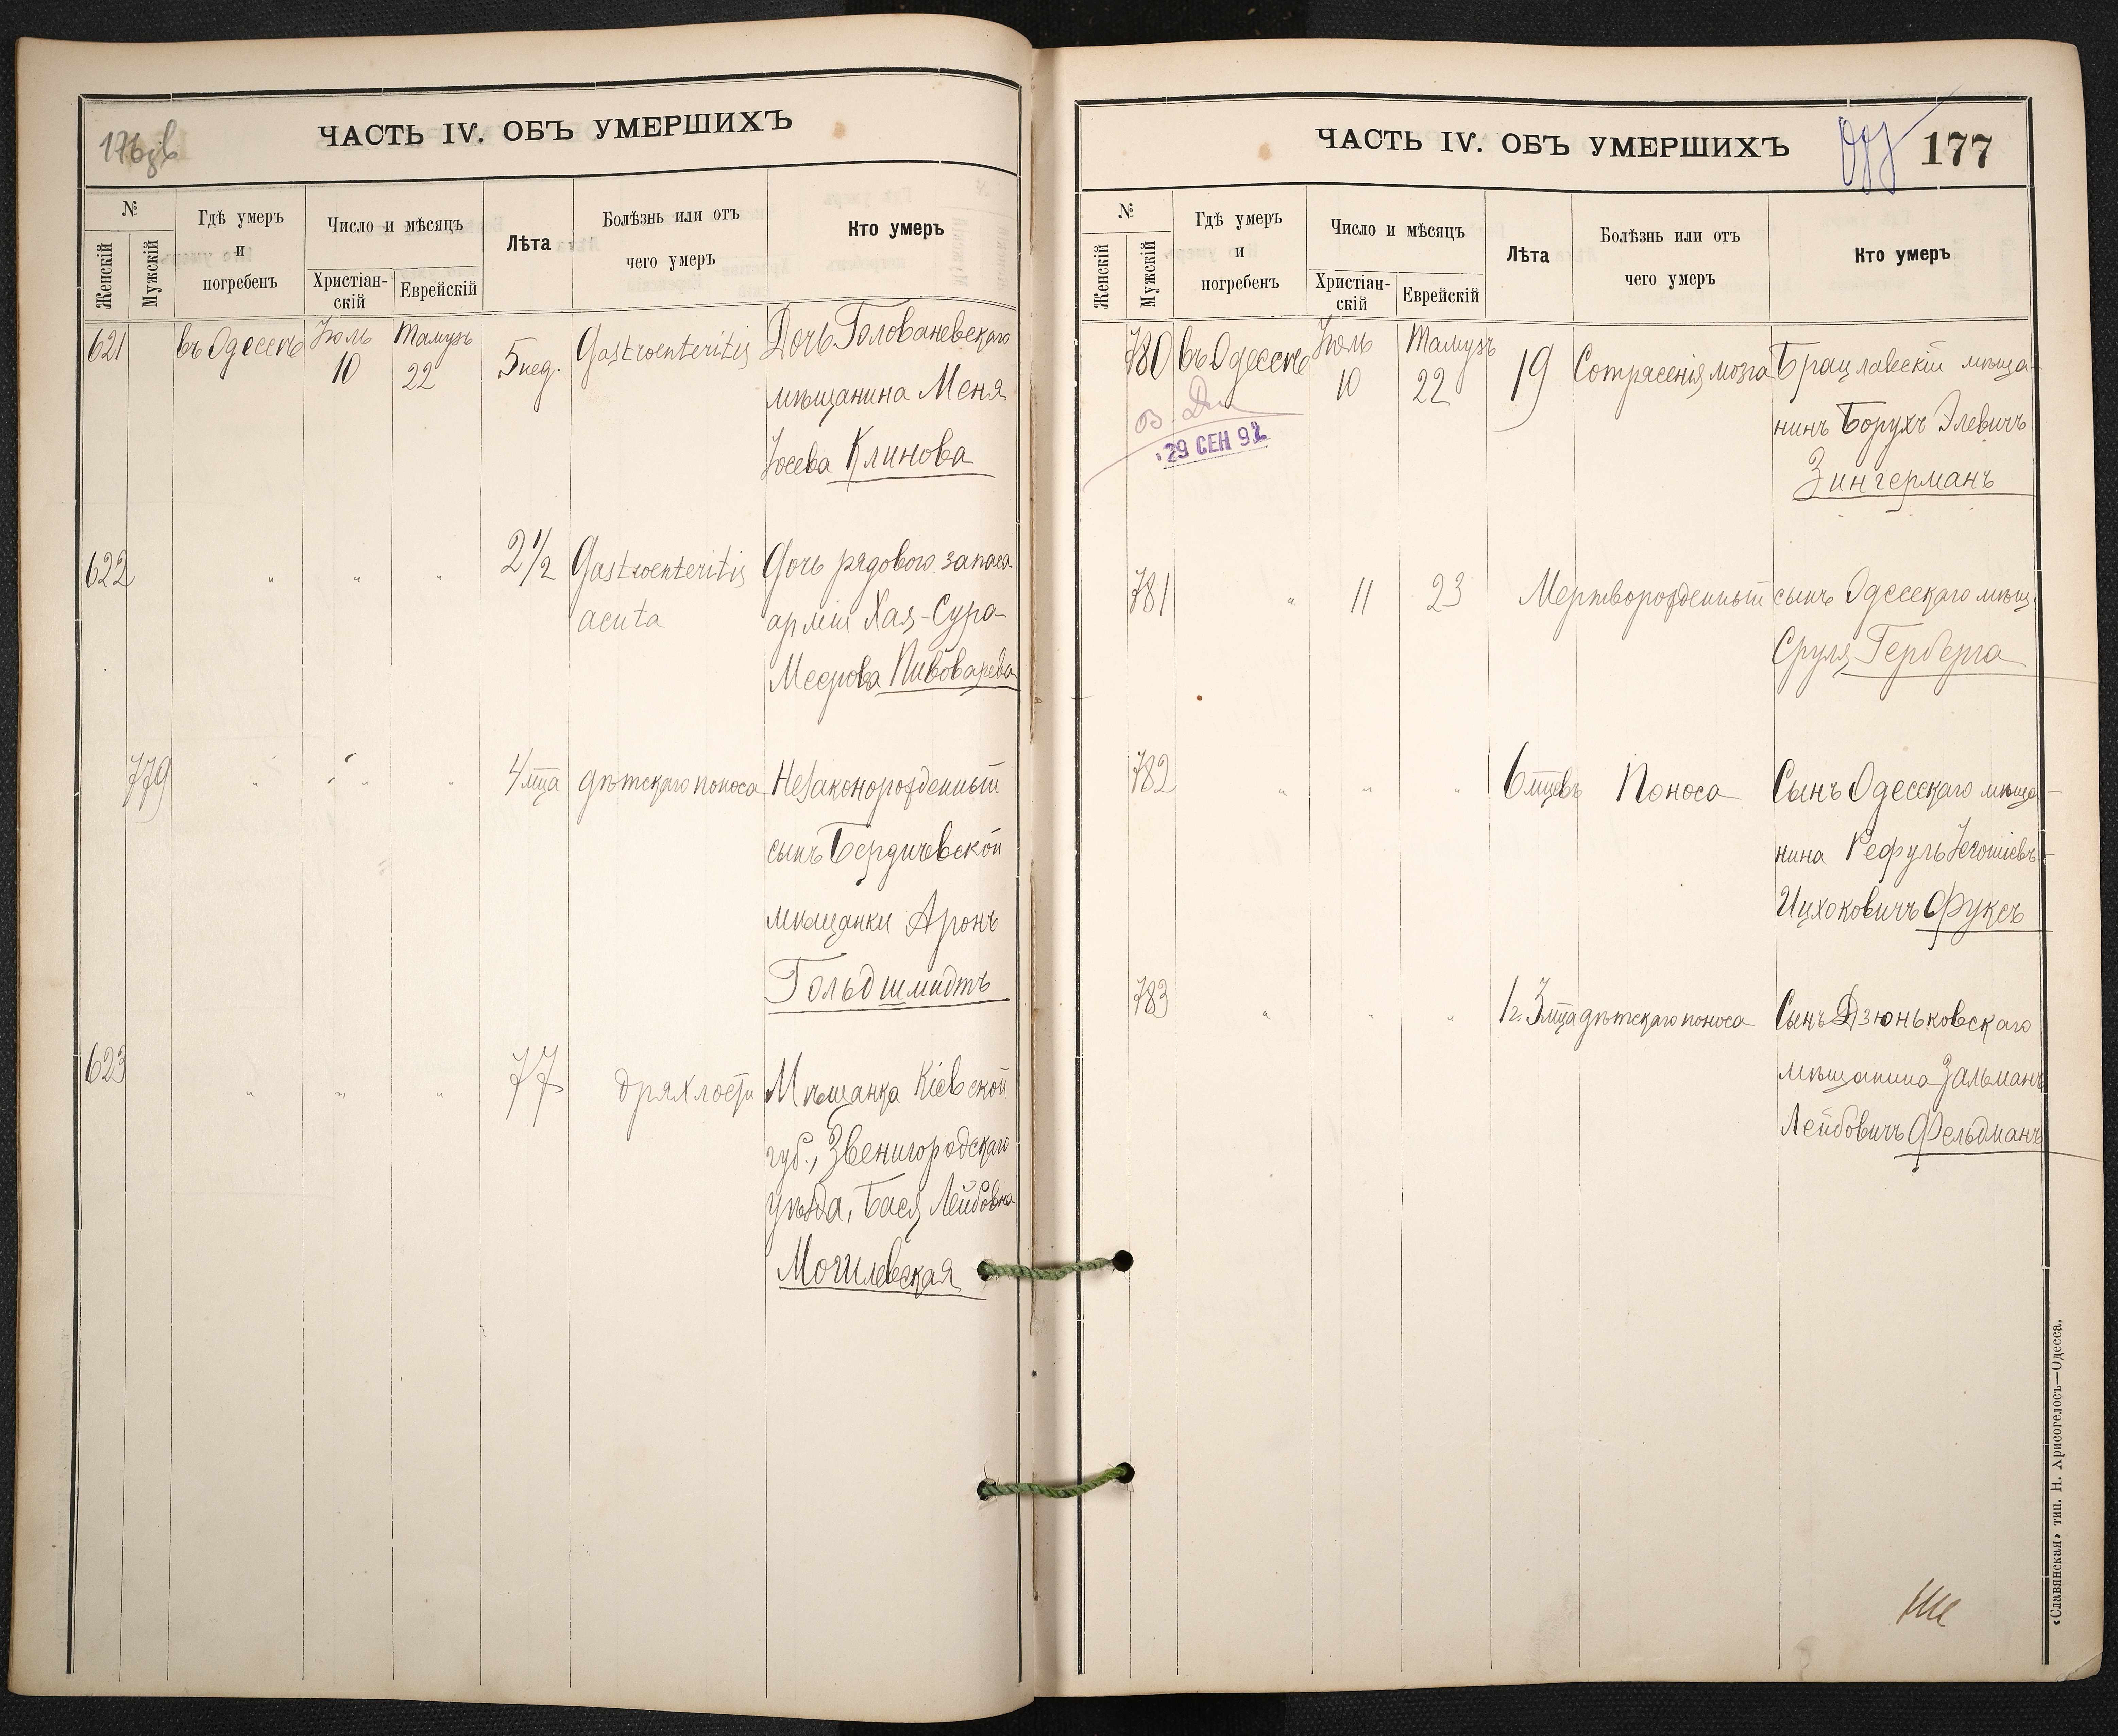 176 зв
ЧАСТЬ IV. ОБЪ УМЕРШИХЪ
№
Женскій
Мужскій
Гдѣ умеръ
и
погребенъ
Число и мѣсяцъ
Христіан-
скій
Еврейскій
Лѣта
Болѣзнь или отъ
чего умеръ
Кто умеръ
621 въ Одессѣ Іюль 10 Тамузъ 22 5 нед. Gastroenteritis Дочь Голованевскаго
мѣщанина Меня
Іосева Клинова
622 " " " 2 1/2 Gastroenteritis Дочь рядового запаса
acuta арміи Хая-Сура
Меерова Пивоварева
779 " " " 4 мца дѣтскаго поноса Незаконорожденный
сынъ Бердичевской
мѣщанки Аронъ
Гольдшмидтъ
623 " " " 77 дряхлости Мѣщанка Кіевской
губ., Звенигородскаго
уѣзда, Бася Лейбовна
Могилевская
ЧАСТЬ IV. ОБЪ УМЕРШИХЪ
177
№
Женскій
Мужскій
Гдѣ умеръ
и
погребенъ
Число и мѣсяцъ
Христіан-
скій
Еврейскій
Лѣта
Болѣзнь или отъ
чего умеръ
Кто умеръ
780 въ Одессѣ Іюль 10 Тамузъ 22 19 Сотрясенія мозга Брацлавскій мѣща-
нинъ Борухъ Элевичъ
Зингерманъ
29 СЕН 92
781 " 11 23 Мертворожденный сынъ Одесскаго мѣщ.
Сруля Герберга
782 " " " 6 мцевъ Поноса Сынъ Одесскаго мѣща-
нина Рефуль
Ицхоковичъ Фуксъ
783 " " " 1 г. 3 мца дѣтскаго поноса Сынъ Дзюньковскаго
мѣщанина Зальманъ
Лейбовичъ Фельдманъ
«Славянская» тип. Н. Хрисогелосъ—Одесса.